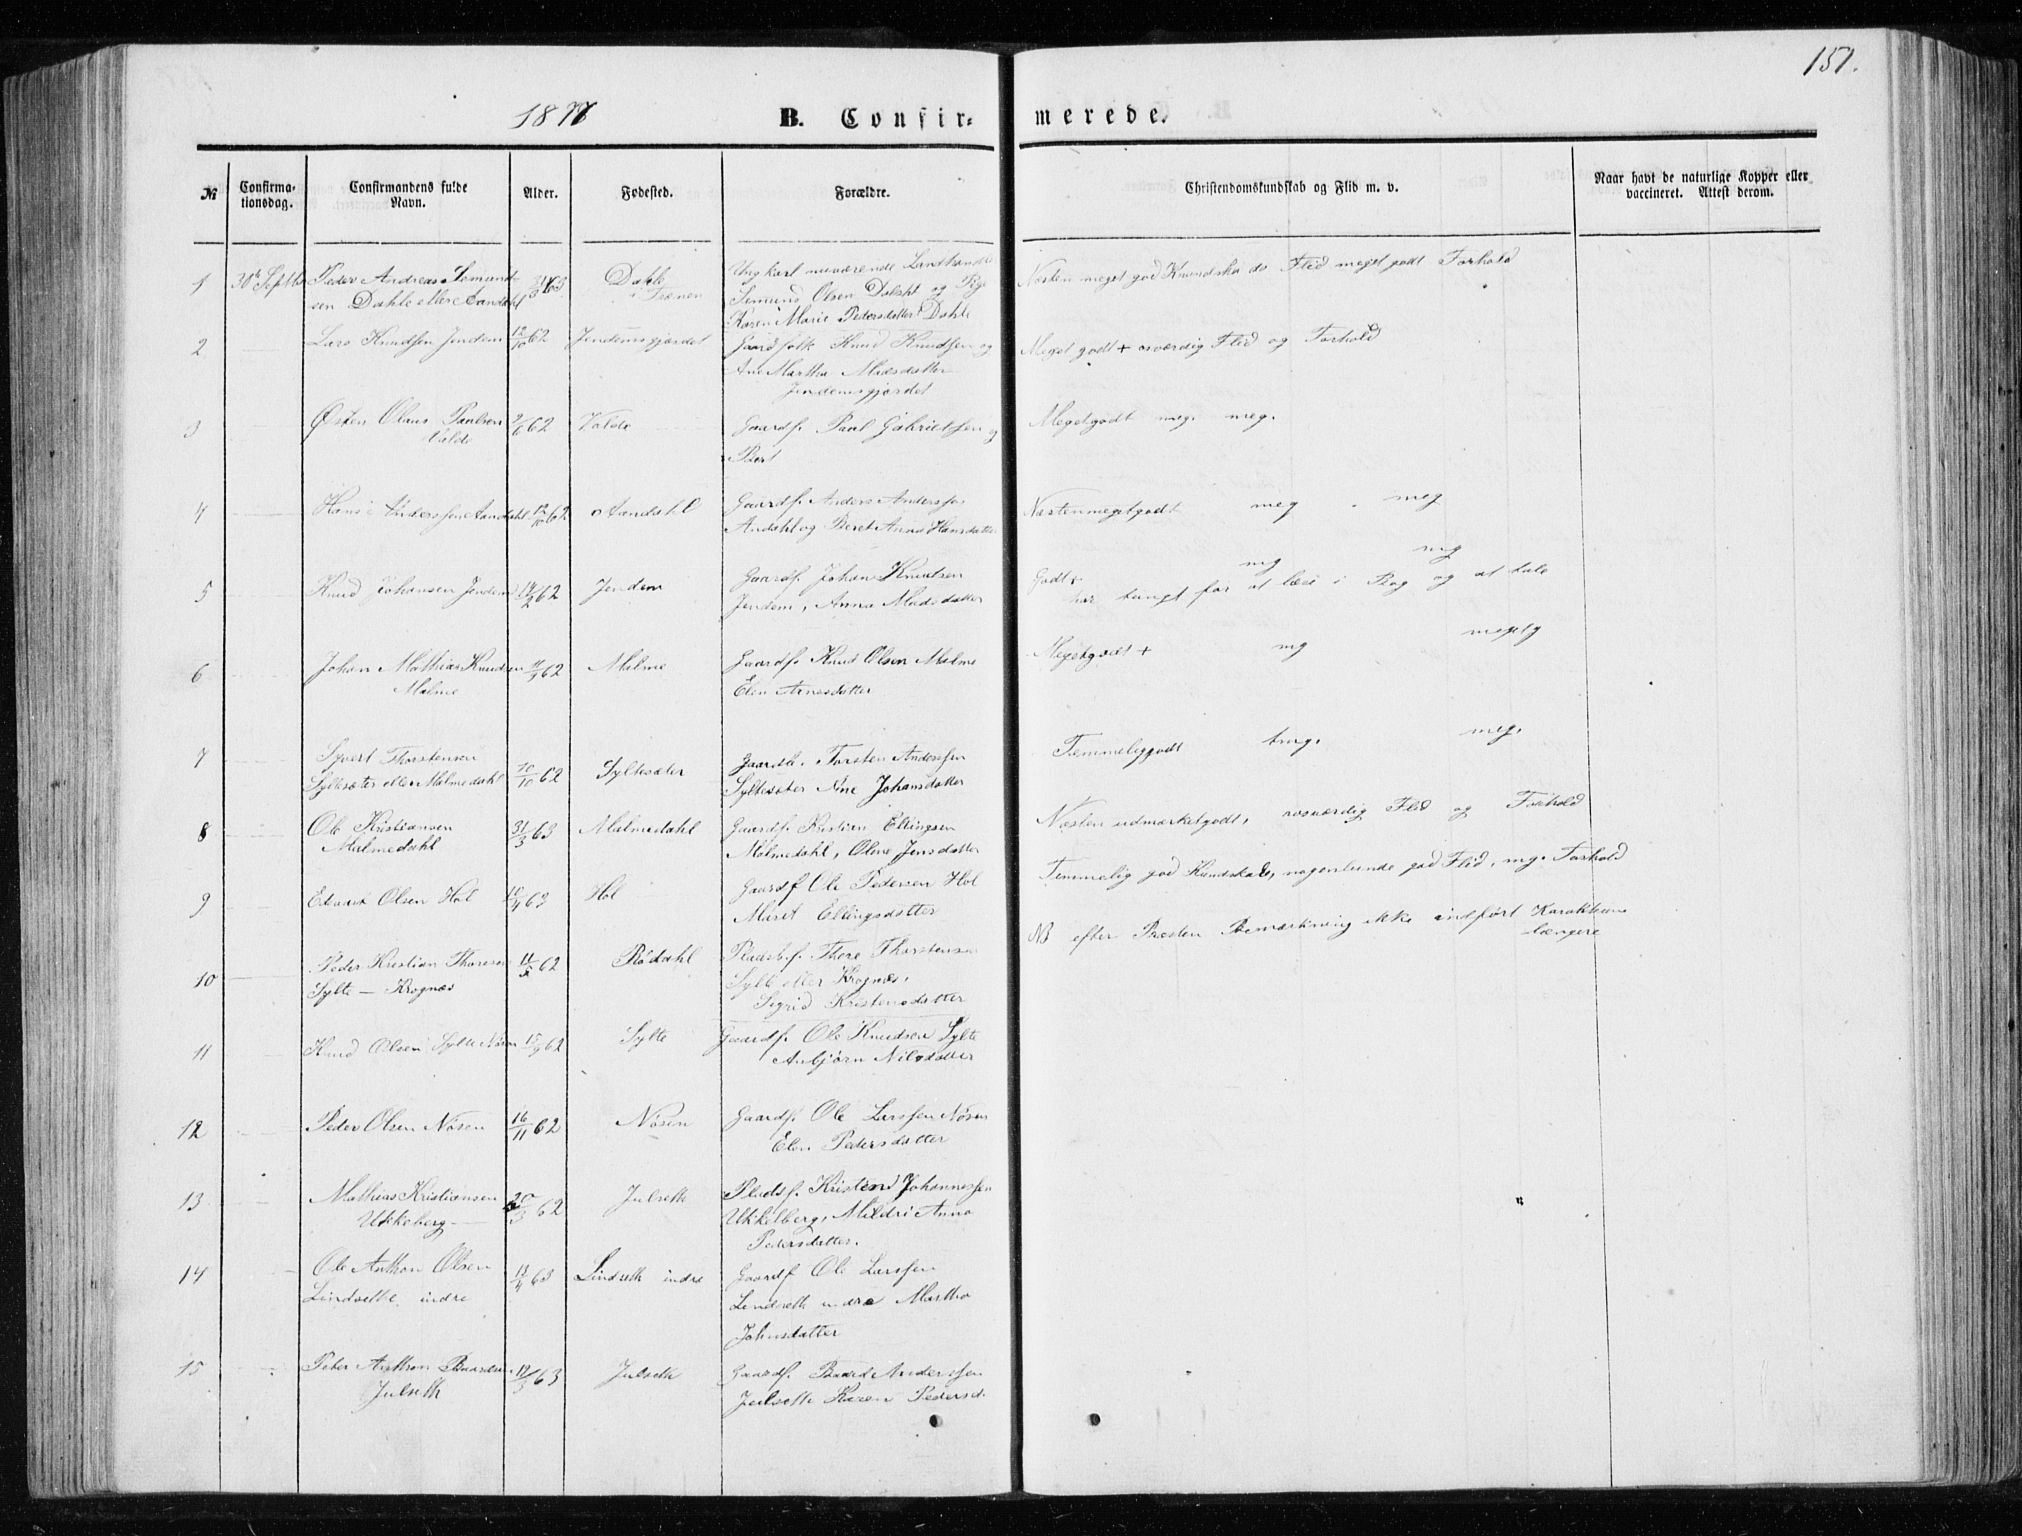 151.
1877
B. Confirmerede.
№
Confirmationsdag.
Confirmandens fulde Navn.
Alder.
Fødested.
Forældre.
Christendomskundskab og Flid m. v.
Naar havt de naturlige Kopper eller vaccineret. Attest derom.
1 30te Septbr Peder Andreas Semund- 63 Dahle Ungkarl nuværende
sen Dahle eller Aandahl Semund Olsen og Pige
Karen Marie Pedersdatter Dahle
Næsten meget god Kundskab Flid meget godt Forhold
2 Lars Knudsen Jendem 12/10 62 Jendemsgjærdet Gaardfolk Knud Knudsen og
Ane Martha Madsdatter
Jendemsgjærdet
Meget godt + rosværdig Flid og Forhold
3 Østen Olaus Paulsen 62 Valde Gaardf. Paul Gabrielsen og
Valde Beret
Meget godt meg. meg.
4 Hans Anderssen Aandahl 12/10 62 Aandahl Gaardf. Anders Andersen
Andahl og Beret Anna Hansdatter
Næsten megetgodt meg meg
5 Knud Johansen Jendem 14/2 62 Jendem Gaardf. Johan Knutsen
Jendem, Anna Madsdatter
Godt + mg mg
har tungt for at læse i Bog og at tale
6 Johan Mathias Knudsen 11/9 62 Malme Gaardf. Knud Olsen Malme
Malme Elen Arnesdatter
Megetgodt + mg megetg
7 Syvert Thorstensen
Syltesæter eller Malmedahl 10/10 62 Syltesæter Gaardb. Torsten Anderssen
Syltesæter Ane Johansdatter
Temmeliggodt tmg. meg.
8 Ole Kristiansen 31/3 63 Malmedahl Gaardf. Kristian Ellingsen
Malmedahl Malmedahl, Oline Jensdatter
Næsten udmærketgodt, rosværdig Flid og Forhold
9 Edvard Olsen Hol 10/4 63 Hol Gaardf Ole Pedersen Hol
Marit Ellingsdatter
Temmelig god Kundskab, nogenlunde god Flid, mg. Forhold
NB efter Præsten Bemærkning ikke indført Karaktererne
længere
10 Peder Kristian Thoresen 11/5 62 Rødahl Pladsf. Thore Thorstensen
Sylte — Krognæs Sylte eller Krognæs,
Sigrid Kristensdatter
11 Knud Olsen Sylte Nøsen 15/9 62 Sylte Gaardf. Ole Knudsen Sylte
Anbjørn Nilsdatter
12 Peder Olsen Nøsen 16/11 62 Nøsen Gaardf. Ole Larssen Nøsen
Elen Pedersdatter
13 Mathias Kristiansen 20/3 62 Julseth Pladsf. Kristend Johannessen
Ukkeberg Ukkelberg, Mildri Anna
Pedersdatter.
14 Ole Anthon Olsen 13/4 63 Lindseth indre Gaardf Ole Larssen
Lindseth indre Lindseth indre Martha
Johnsdatter
15 Peter Anthon Baardsen 12/3 63 Julseth Gaardf. Baard Anderssen
Julseth Julseth Karen Pedersd.